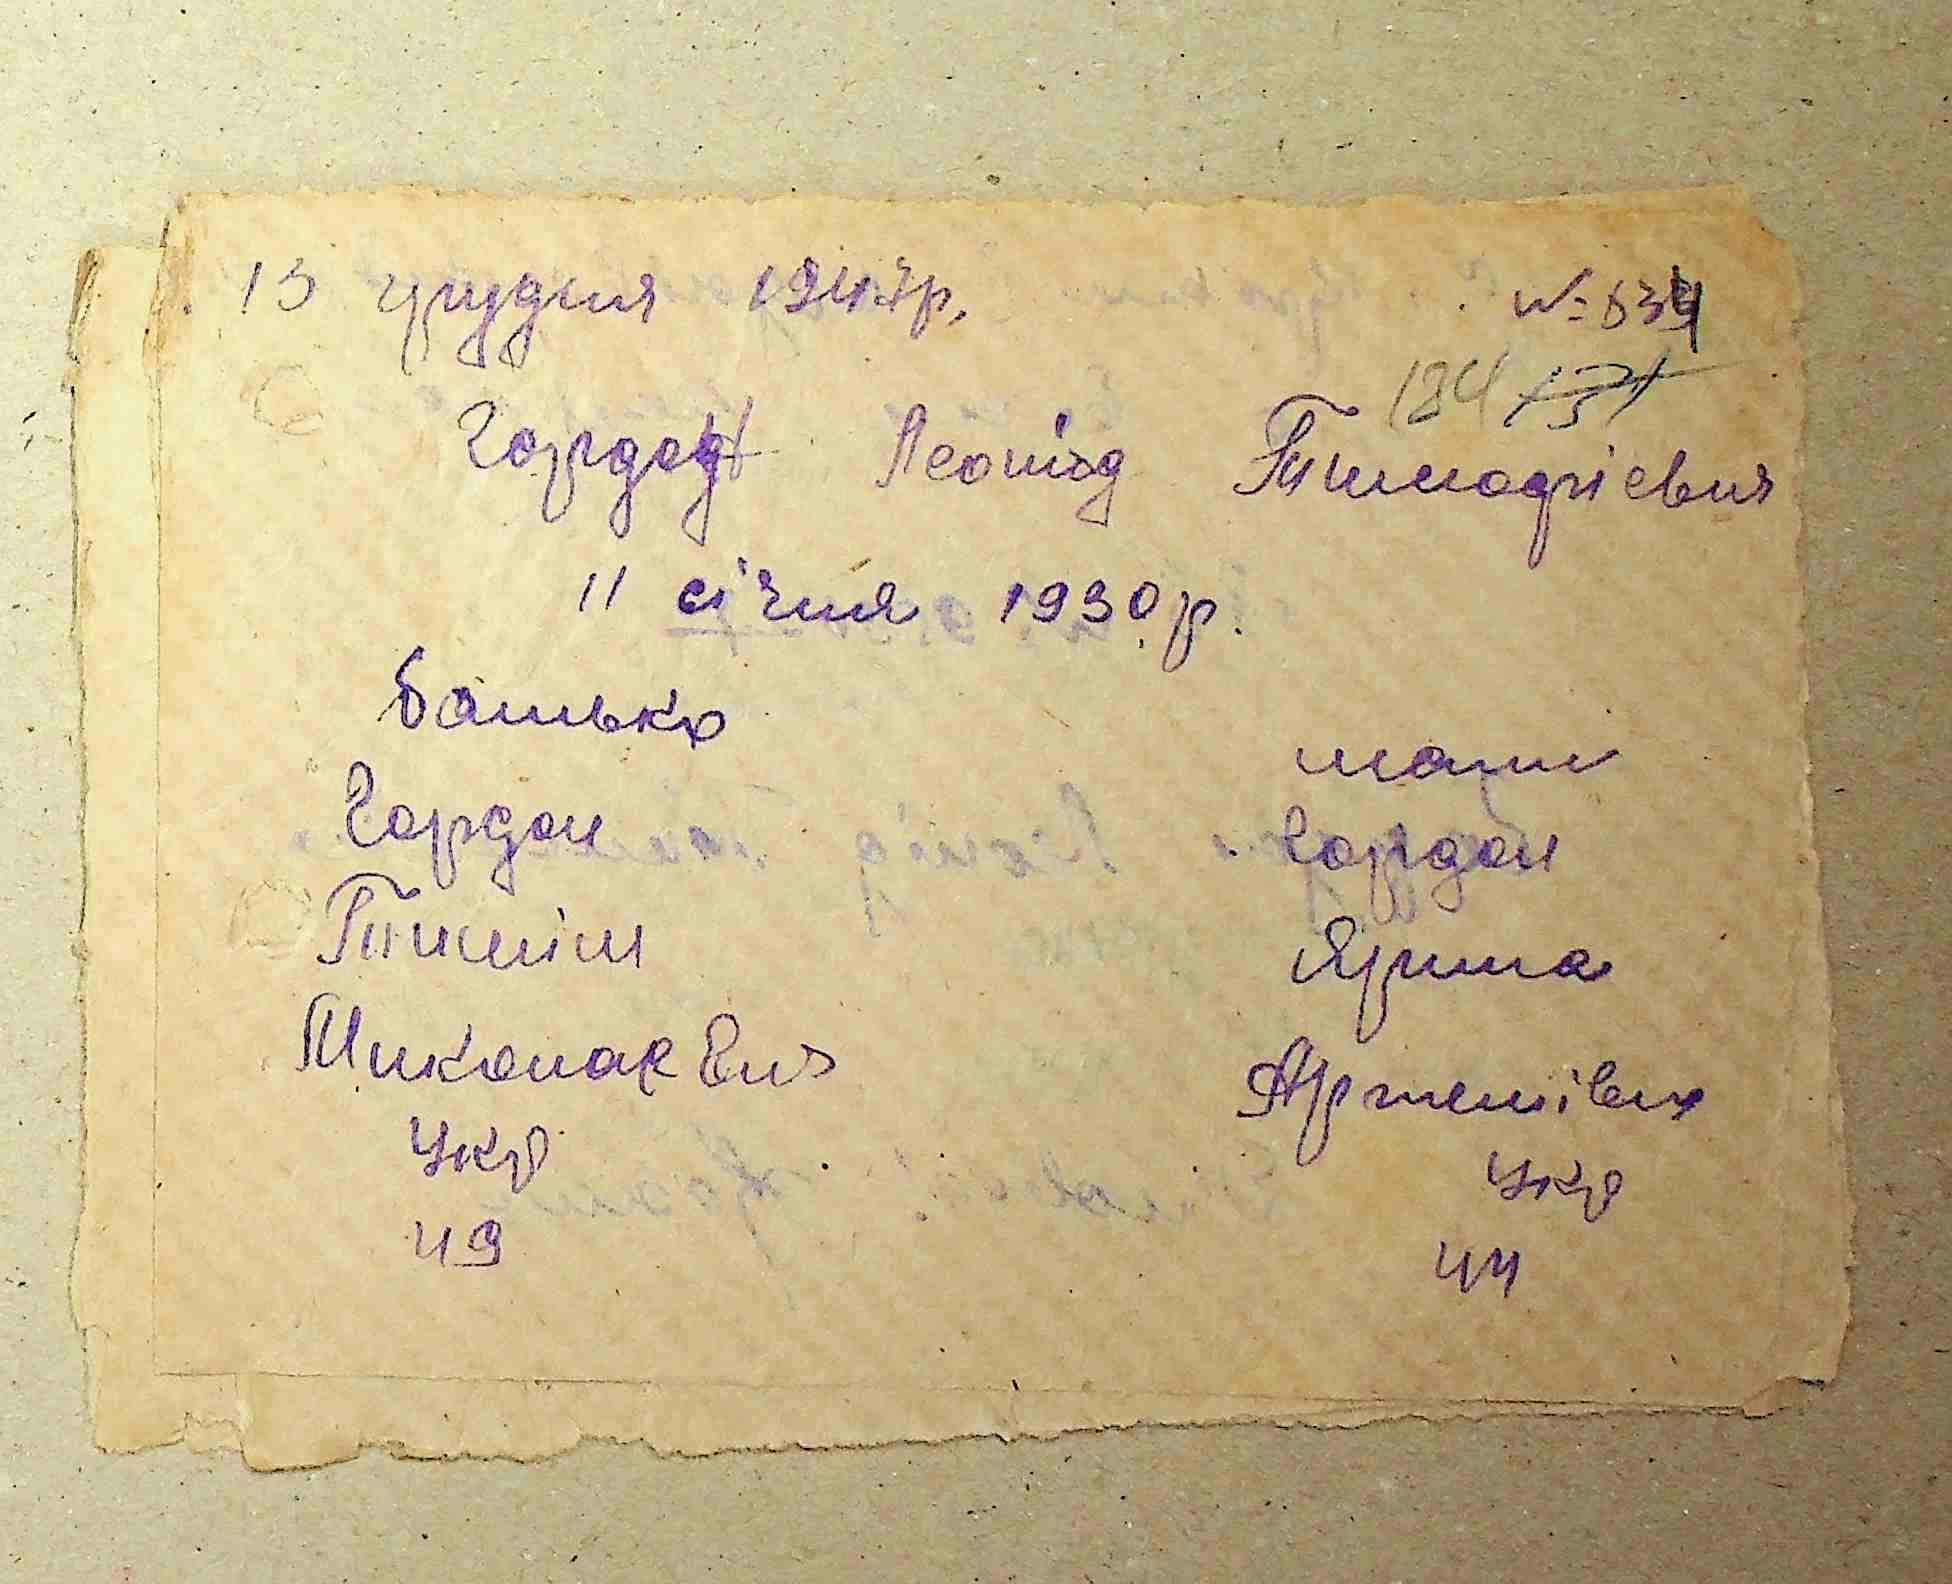 13 грудня 1947р. № 634
184
Гордон Леонід Тимофієвич
11 січня 1930 р.
батько мати
Гордон Гордон
Тиміш Ярина
Миколаєвич Артемівна
Укр Укр
49 44